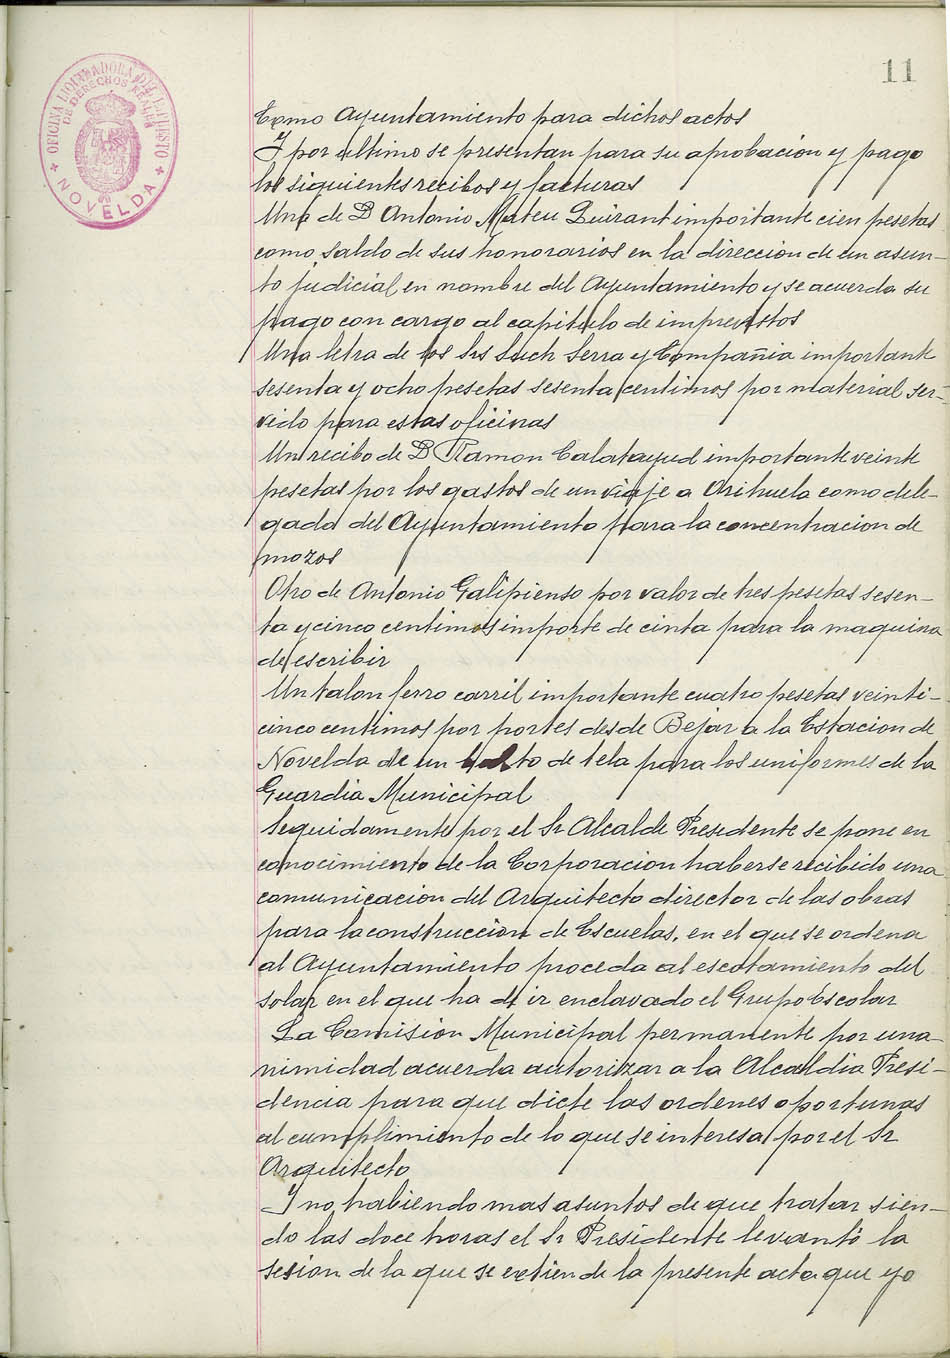 11
OFICINA LIQUIDADORA DEL IMPUESTO
DE DERECHOS REALES
NOVELDA
Exmo Ayuntamiento para dichos actos
Y por ultimo se presentan para su aprobacion y pago
los siguientes recibos y facturas
Uno de D Antonio Mateu Guirant importante cien pesetas
como saldo de sus honorarios en la direccion de un asun-
to judicial en nombre del Ayuntamiento y se acuerda su
pago con cargo al capitulo de imprevistos
Una letra de los Srs Such Serra y Compañia importante
sesenta y ocho pesetas sesenta centimos por material ser-
vido para estas oficinas
Un recibo de D Ramon Calatayud importante veinte
pesetas por los gastos de un viaje a Orihuela como dele-
gado del Ayuntamiento para la concentracion de
mozos
Otro de Antonio Galipienso por valor de tres pesetas sesen-
ta y cinco centimos importe de cinta para la maquina
de escribir
Un talon ferro carril importante cuatro pesetas veinti-
cinco centimos por portes desde Bejar a la Estacion de
Novelda de un bulto de tela para los uniformes de la
Guardia Municipal
Seguidamente por el Sr Alcalde Presedente se pone en
conocimiento de la Corporacion haberse recibido una
comunicacion del Arquitecto director de las obras
para la construccion de Escuelas, en el que se ordena
al Ayuntamiento proceda al escotamiento del
solar en el que ha de ir enclavado el Grupo Escolar
La Comision Municipal permanente por una-
nimidad acuerda autorizar a la Alcaldia Presi-
dencia para que dicte las ordenes oportunas
al cumplimiento de lo que se interesa por el Sr
Arquitecto
Y no habiendo mas asuntos de que tratar sien-
do las doce horas el Sr Presidente levantó la
sesion de la que se extiende la presente acta que yo